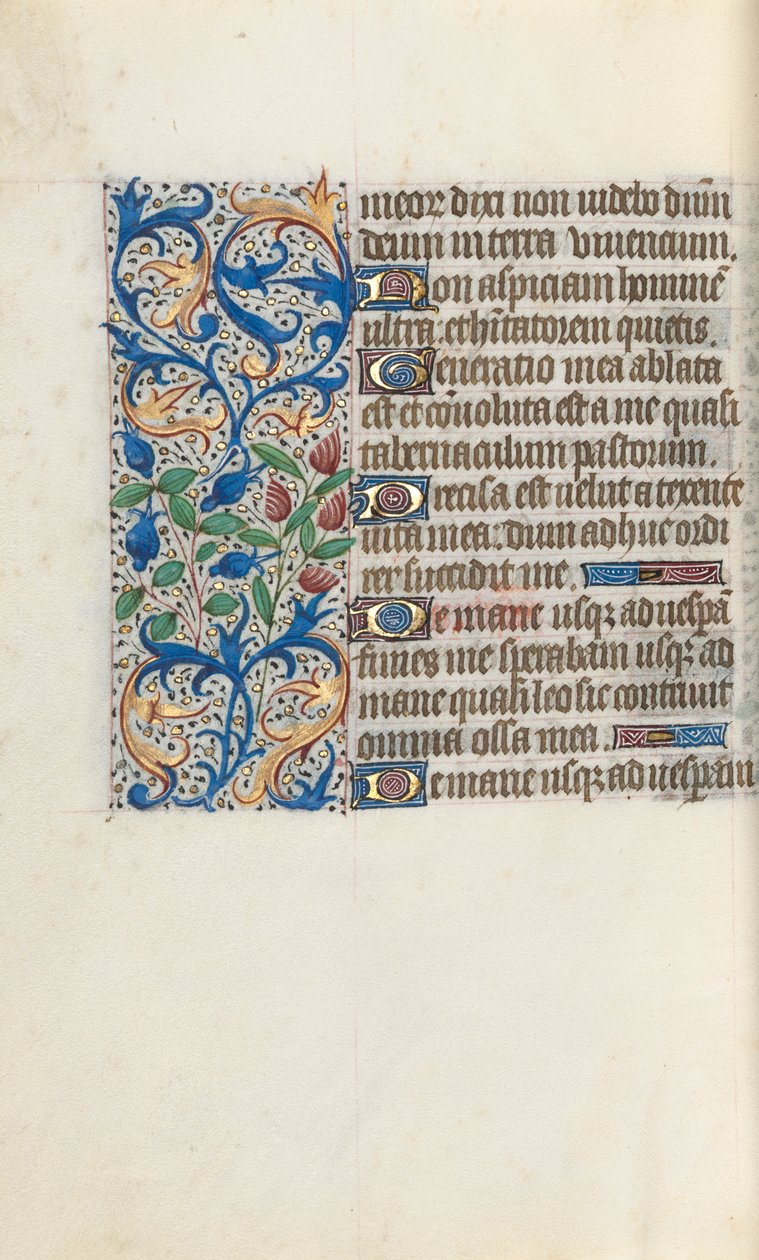 meor dixi non videbo dn̄m
deum in terra viuencium.
Non aspiciam hominē
ultra: et hītatorem quietis.
Generatio mea ablata
est et cōuoluta est a me quasi
tabernaculum pastorum.
Precisa est uelut a texente
uita mea: dum adhuc ordi
rer succidit me.
De mane usqꝫ ad uespā
finies me sperabam usqꝫ ad
mane quasi leo sic contriuit
omnia ossa mea.
De mane usqꝫ ad uespam